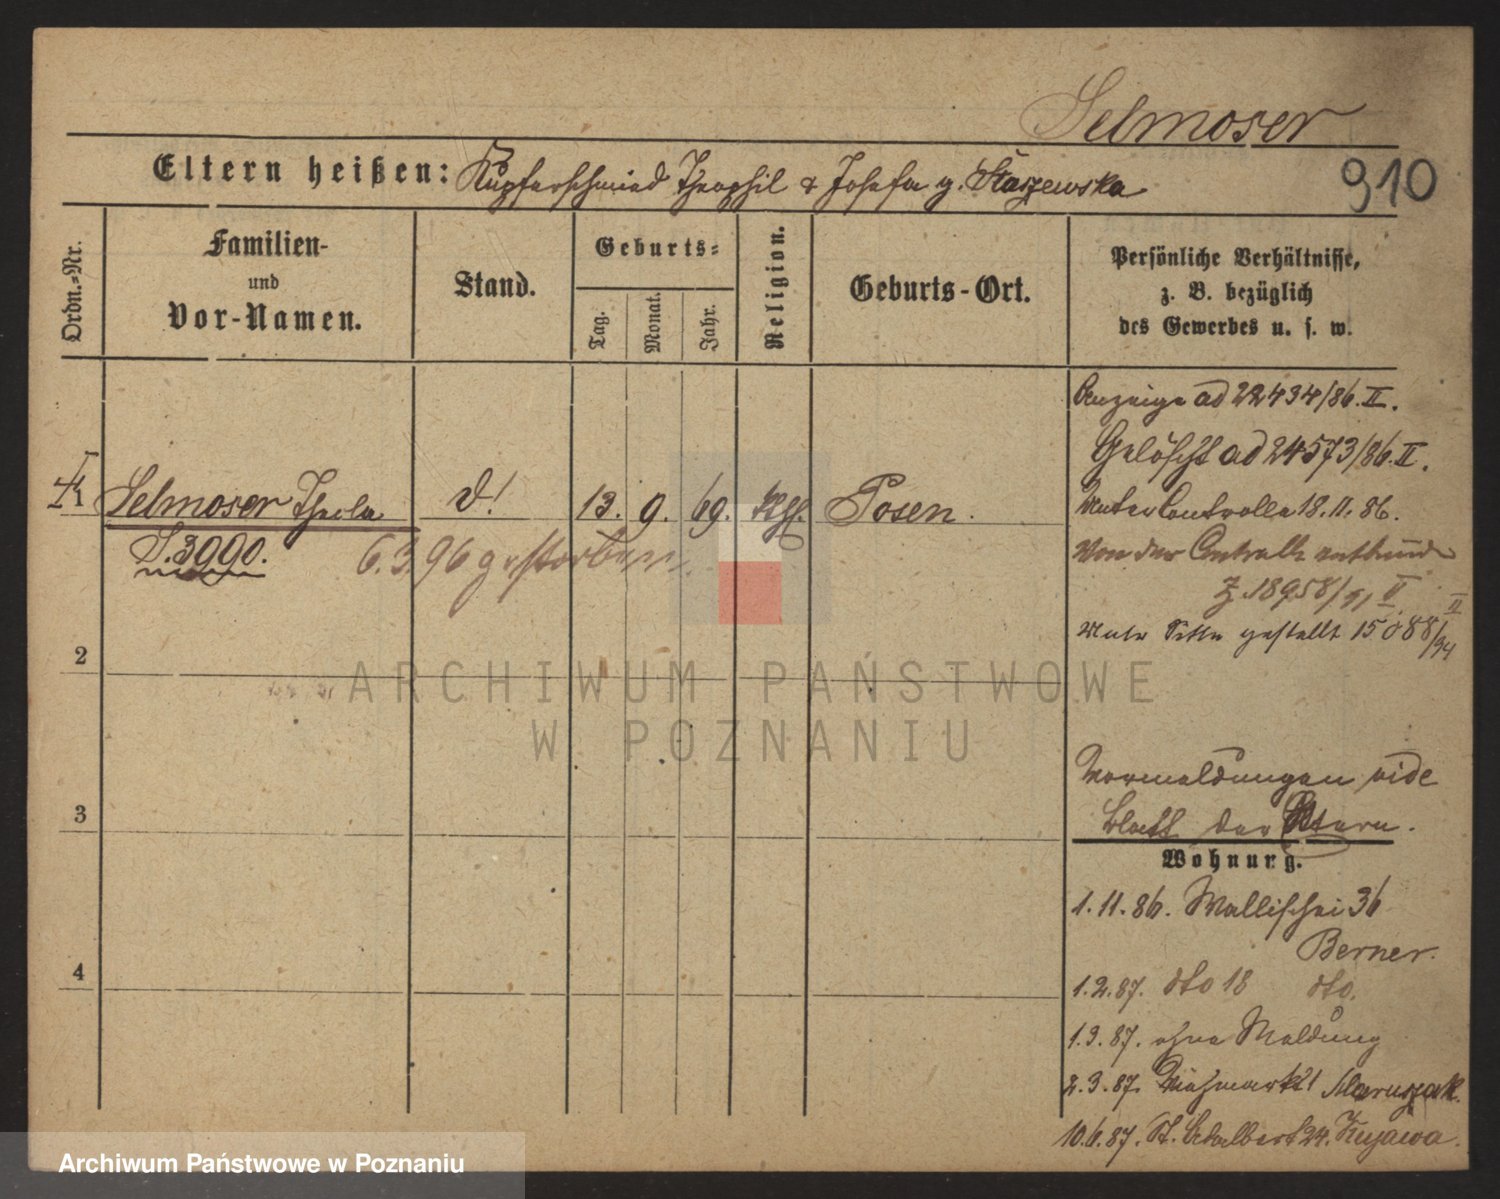 Selmoser
910
Eltern heißen: Kupferschmied Theophil & Josefa g. Staszewska
Ordn.-Nr.
Familien-
und
Vor-Namen.
Stand.
Geburts-
Tag.
Monat.
Jahr.
Religion.
Geburts-Ort.
Persönliche Verhältnisse,
z. B. bezüglich
des Gewerbes u. s. w.
Anzeige ad 22434/86. II.
Gelöscht ad 24573/86. II.
1 Selmoser Thecla d! 13. 9. 69. Kth. Posen.
Unter Controlle 18.11.86.
S. 3990. 6.3.96 gestorben.
Von der Controlle entbunden
Z. 18958/91 II
Unter Sitte gestellt 15088/94 II
2
3
4
Vormeldungen vide
Blatt der Eltern.
Wohnung.
1.11.86. Wallischei 36
Berner.
1.2.87. dto 18 dto.
1.3.87. ohne Meldung
2.3.87. Viehmarkt 1 Maruszak.
10.6.87. St. Adalbert 24. Kujawa.
ARCHIWUM PAŃSTWOWE
W POZNANIU
Archiwum Państwowe w Poznaniu